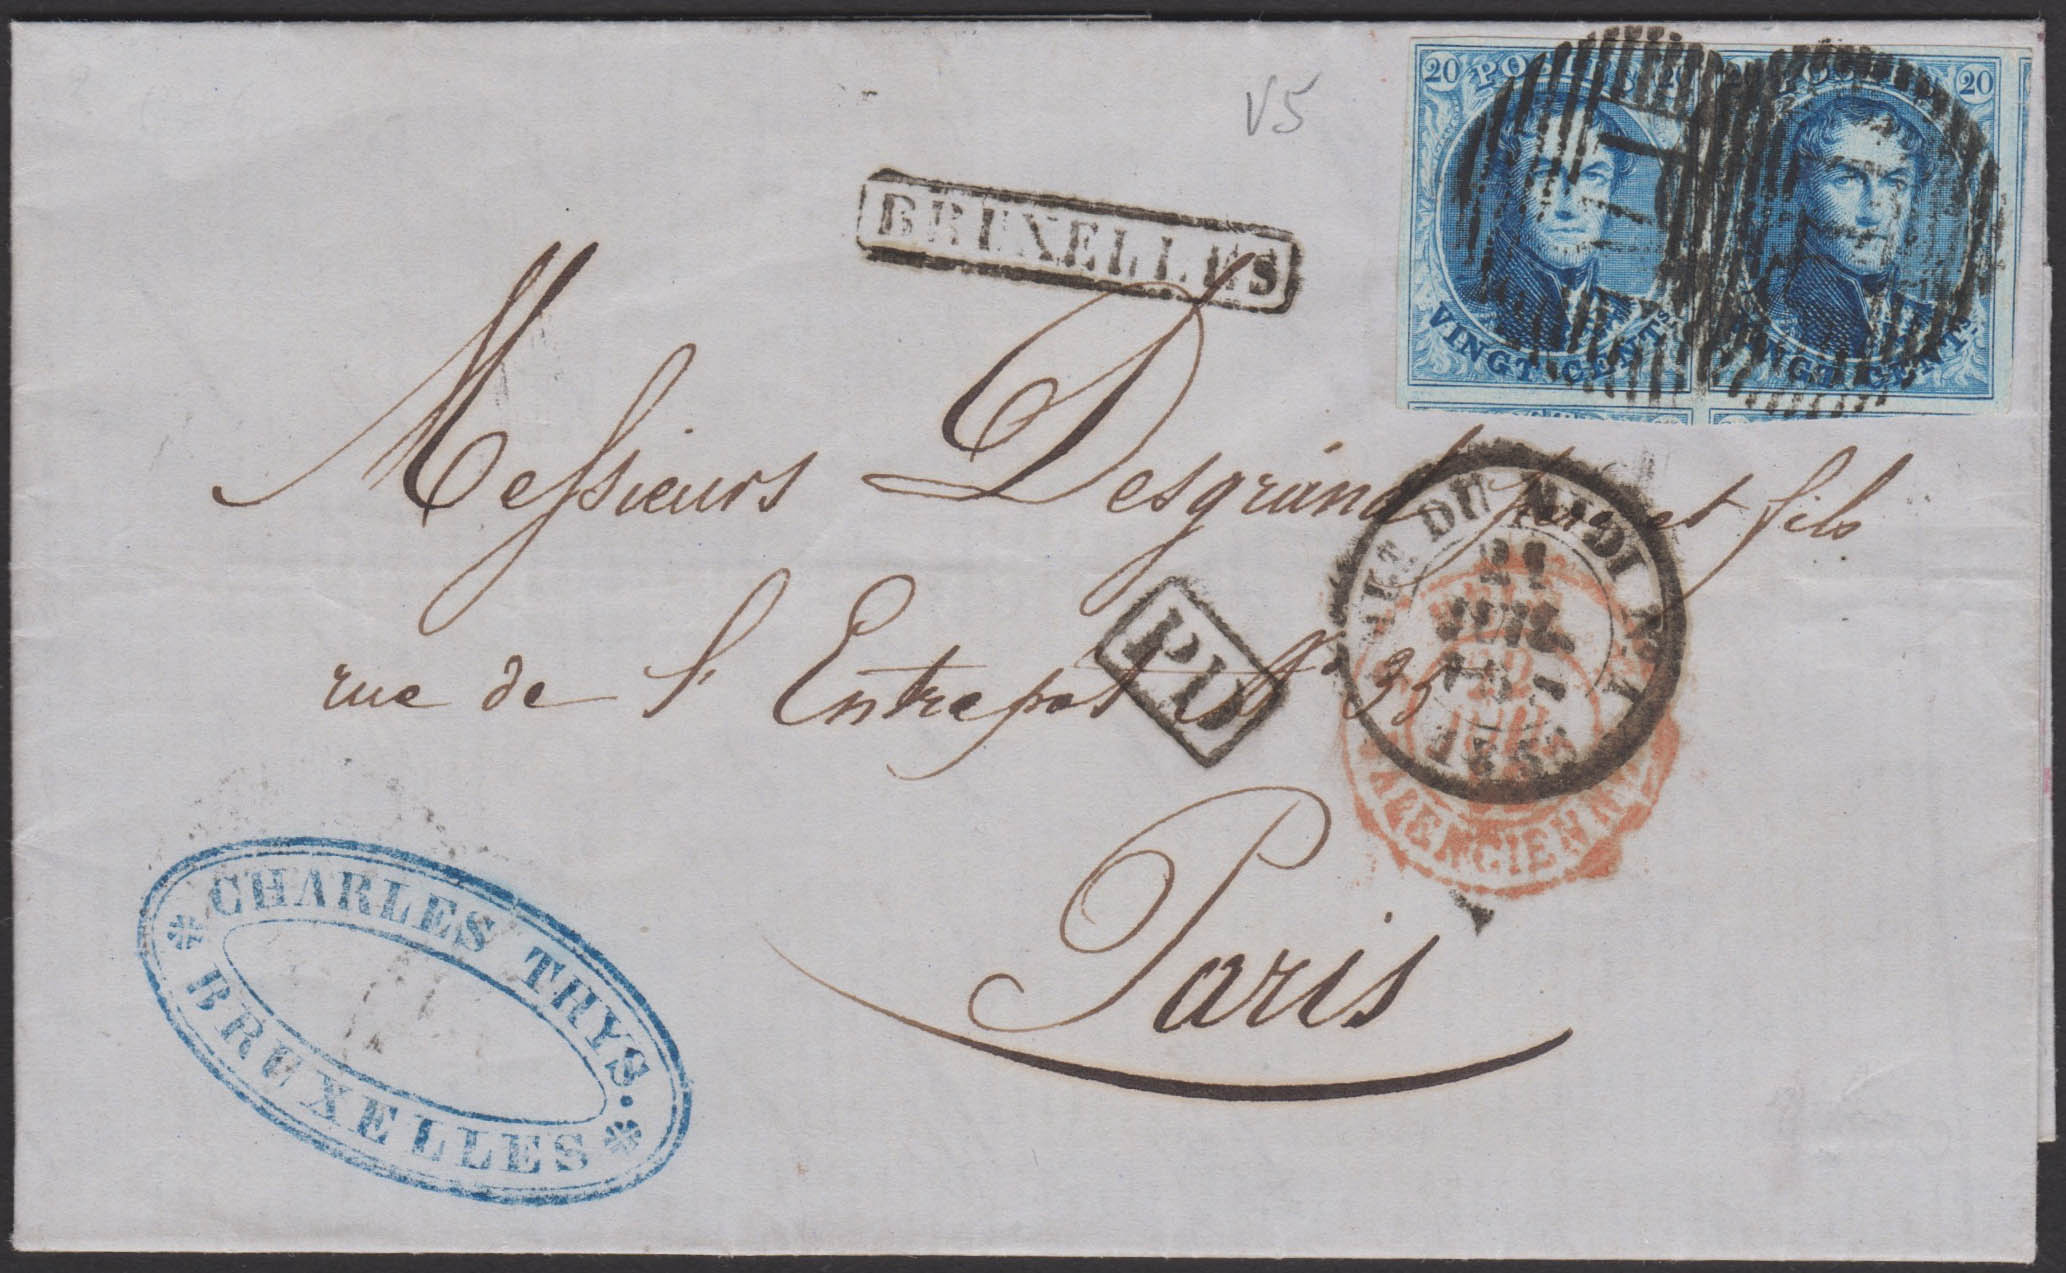 V5
20 POSTES 20
VINGT CENTS.
20 POSTES 20
VINGT CENTS.
BRUXELLES
Messieurs Desgrand père et fils
rue de l'Entrepôt No 35
Paris
PD
DU MIDI No I
21
JUIL
1855
VALENCIENNES
CHARLES THYS.
BRUXELLES